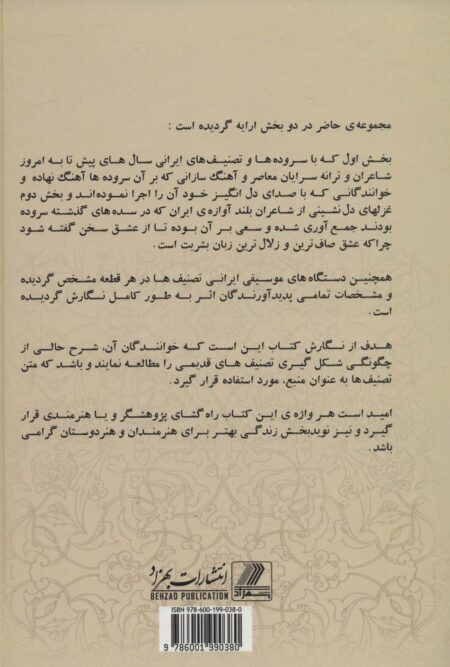 مجموعه‌ی حاضر در دو بخش ارایه گردیده است :
بخش اول که با سروده ها و تصنیف‌های ایرانی سال های پیش تا به امروز
شاعران و ترانه سرایان معاصر و آهنگ سازانی که بر آن سروده ها آهنگ نهاده و
خوانندگانی که با صدای دل انگیز خود آن را اجرا نموده‌اند و بخش دوم
غزلهای دل نشینی از شاعران بلند آوازه‌ی ایران که در سده‌های گذشته سروده
بودند جمع آوری شده و سعی بر آن بوده تا از عشق سخن گفته شود
چراکه عشق صاف‌ترین و زلال ترین زبان بشریت است .
همچنین دستگاه‌های موسیقی ایرانی تصنیف ها در هر قطعه مشخص گردیده
و مشخصات تمامی پدیدآورندگان اثر به طور کامل نگارش گردیده
است .
هدف از نگارش کتاب این است که خوانندگان آن، شرح حالی از
چگونگی شکل گیری تصنیف های قدیمی را مطالعه نمایند و باشد که متن
تصنیف‌ها به عنوان منبع، مورد استفاده قرار گیرد .
امید است هر واژه ی این کتاب راه گشای پژوهشگر و یا هنرمندی قرار
گیرد و نیز نویدبخش زندگی بهتر برای هنرمندان و هنردوستان گرامی
باشد .
انتشارات بهزاد
بهزاد
BEHZAD PUBLICATION
ISBN 978-600-199-038-0
9 786001 990380